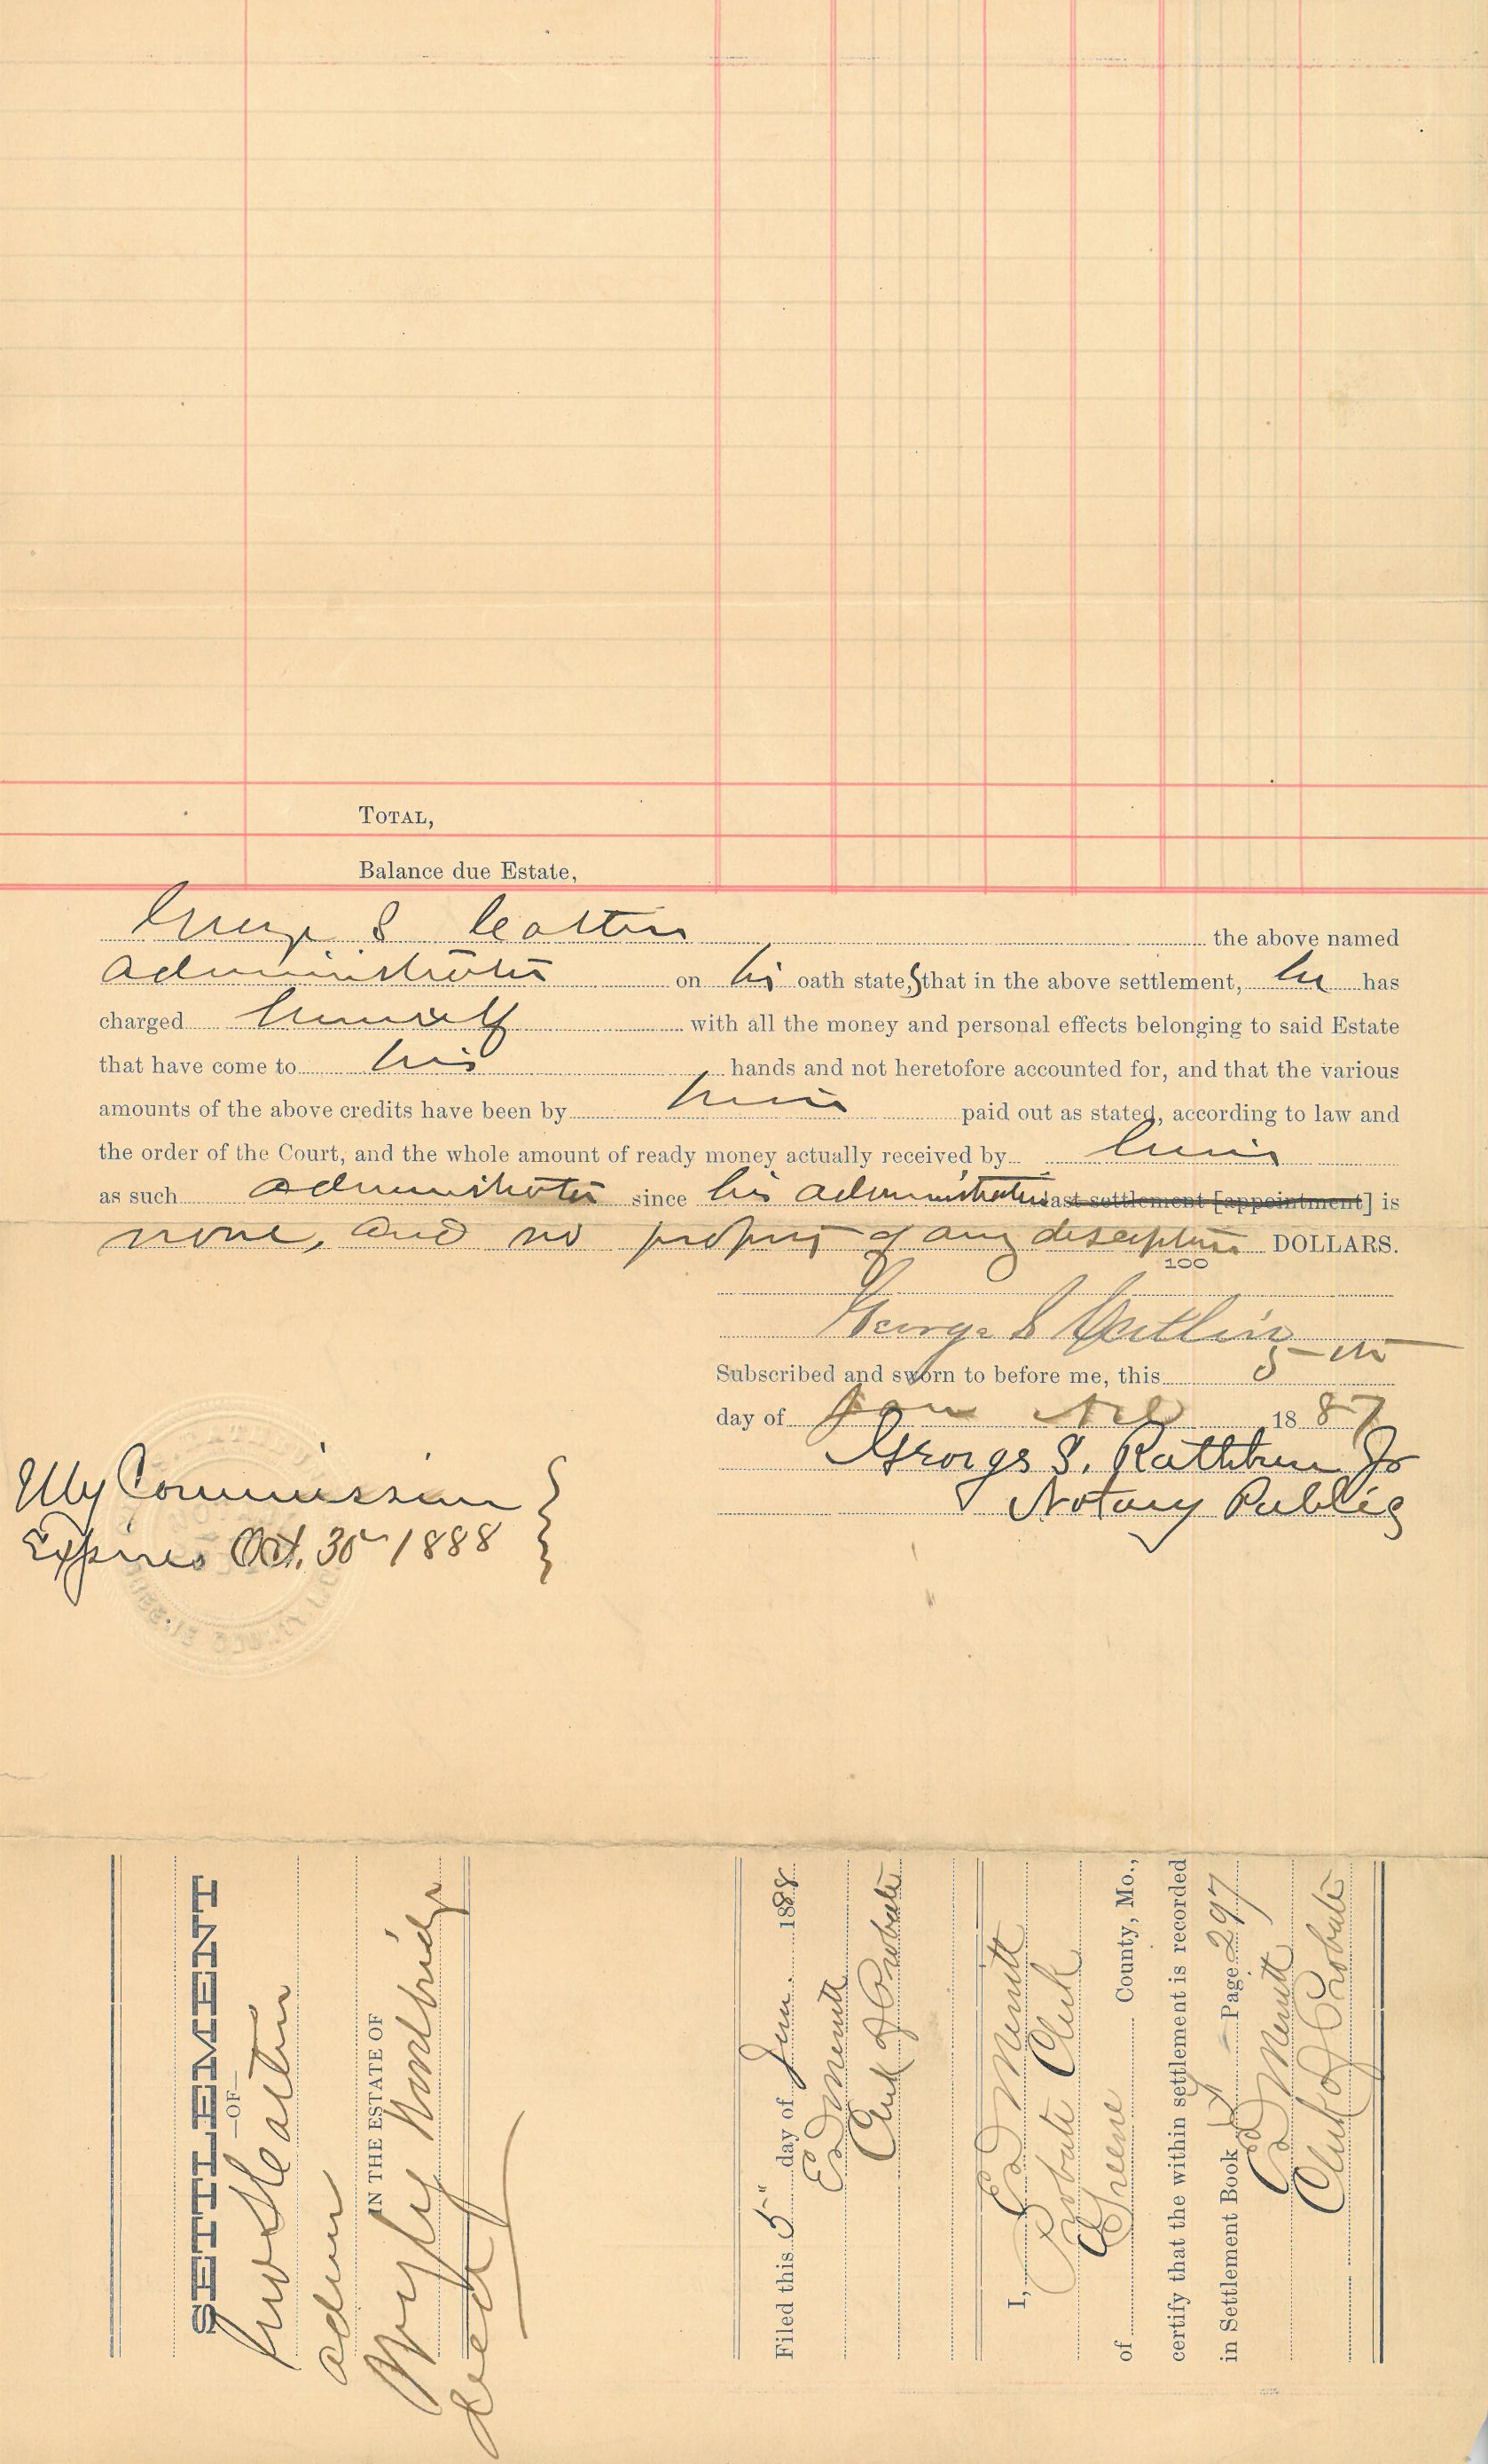 TOTAL,
Balance due Estate,
George S Catlin the above named
administrator on his oath states that in the above settlement, he has
charged himself with all the money and personal effects belonging to said Estate
that have come to his hands and not heretofore accounted for, and that the various
amounts of the above credits have been by him paid out as stated, according to law and
the order of the Court, and the whole amount of ready money actually received by him
as such administrator since his administration last settlement [appointment] is
none, and no property of any description DOLLARS.
100
George S Catlin
Subscribed and sworn to before me, this 5th
day of Jan AD 1887
George S. Rathbun Jr
Notary Public
My Commission
Expires Oct. 30 1888
SETTLEMENT
—OF—
Geo S Catlin
admr
IN THE ESTATE OF
Wyly Woodbridge
decd
Filed this 5" day of Jan. 1888
E D Merritt
Clerk of Probate
I, E D Merritt
Probate Clerk
of Greene County, Mo.,
certify that the within settlement is recorded
in Settlement Book Page 297
E D Merritt
Clerk of Probate